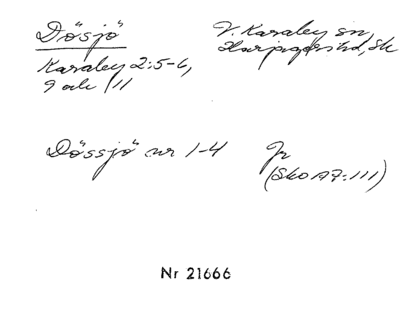 "Dösjö" V. Karaby sn,
Karaby 2:5-6, Harjagers hd, Sk
9 och 11
"Dössjö" nr 1-4 Jr
(Sko A7:111)
Nr 21666